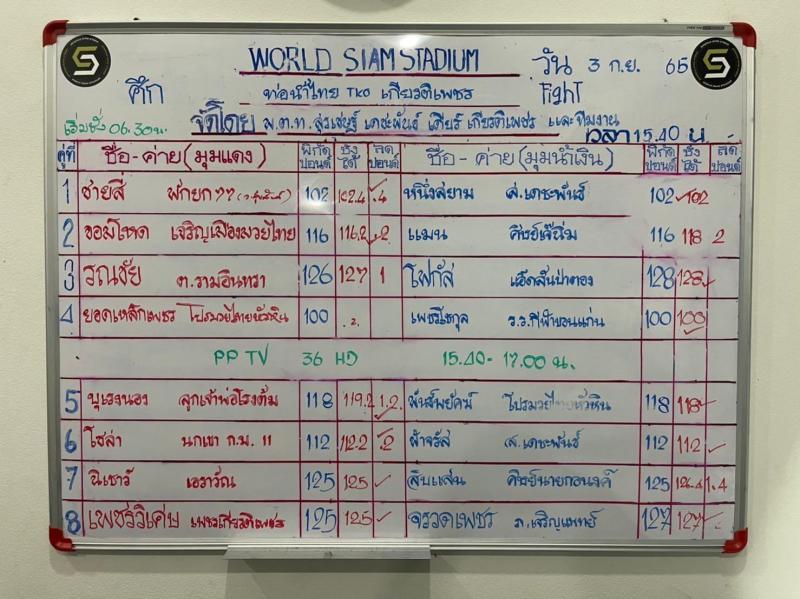 WORLD SIAM STADIUM
วัน 3 ก.ย. 65
ศึก ท่อน้ำไทย TKO เกียรติเพชร Fight
เริ่มชั่ง 06.30 น. จัดโดย พ.ต.ท. สุรเชษฐ์ เดชะพันธ์ เตียร์ เกียรติเพชร และทีมงาน
เวลา 15.40 น.
คู่ที่ ชื่อ - ค่าย (มุมแดง) พิกัด ปอนด์ ชั่งได้ ลด ปอนด์ ชื่อ - ค่าย (มุมน้ำเงิน) พิกัด ปอนด์ ชั่งได้ ลด ปอนด์
1 ชายสี่ พักยก77 102 102.4 .4 หนึ่งสยาม ส.เดชะพันธ์ 102 102
2 จอมโหด เจริญเมืองมวยไทย 116 116.2 .2 แมน ศิษย์เจ๊นิ่ม 116 118 2
3 รณชัย ต.รามอินทรา 126 127 1 โฟกัส เอ็ดสันป่าตอง 128 128
4 ยอดเหล็กเพชร โปรมวยไทยหัวหิน 100 เพชรโชกุล ร.ร.กีฬาขอนแก่น 100 100
PPTV 36 HD 15.40 - 17.00 น.
5 บุเรงนอง ลูกเจ้าพ่อโรงต้ม 118 119.2 1.2 พันธ์พยัคฆ์ โปรมวยไทยหัวหิน 118 118
6 โซล่า นกเขา ก.ม. 11 112 112.2 .2 ฟ้าจรัส ส.เดชะพันธ์ 112 112
7 นิเชาว์ เอราวัณ 125 125 สิบแสน ศิษย์นายกอนงค์ 125 126.4 1.4
8 เพชรวิเศษ เพชรเกียรติเพชร 125 125 จรวดเพชร ภ.เจริญแพทย์ 127 127